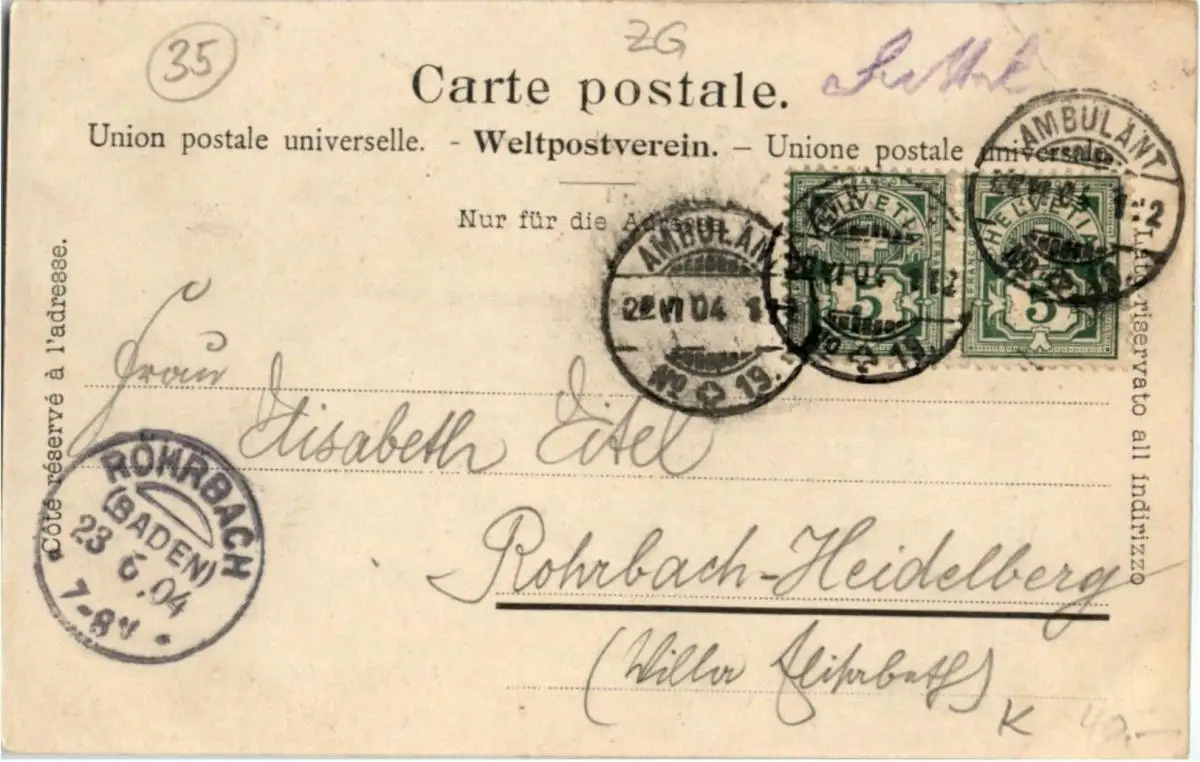 35
ZG
Carte postale.
Union postale universelle. - Weltpostverein. – Unione postale universale.
Nur für die Adresse
AMBULANT
22 VI 04 1
No 19.
HELVETIA
FRANCO
5
AMBULANT
VI 04 112
No 19.
HELVETIA
FRANCO
5
AMBULANT
VI 04 1-2
No 19.
Côté réservé à l'adresse.
Lato riservato all indirizzo
Frau
Elisabeth Eitel
Rohrbach-Heidelberg
(Villa Elisabeth)
K
40.-
ROHRBACH
(BADEN)
23 6.04
7-8V